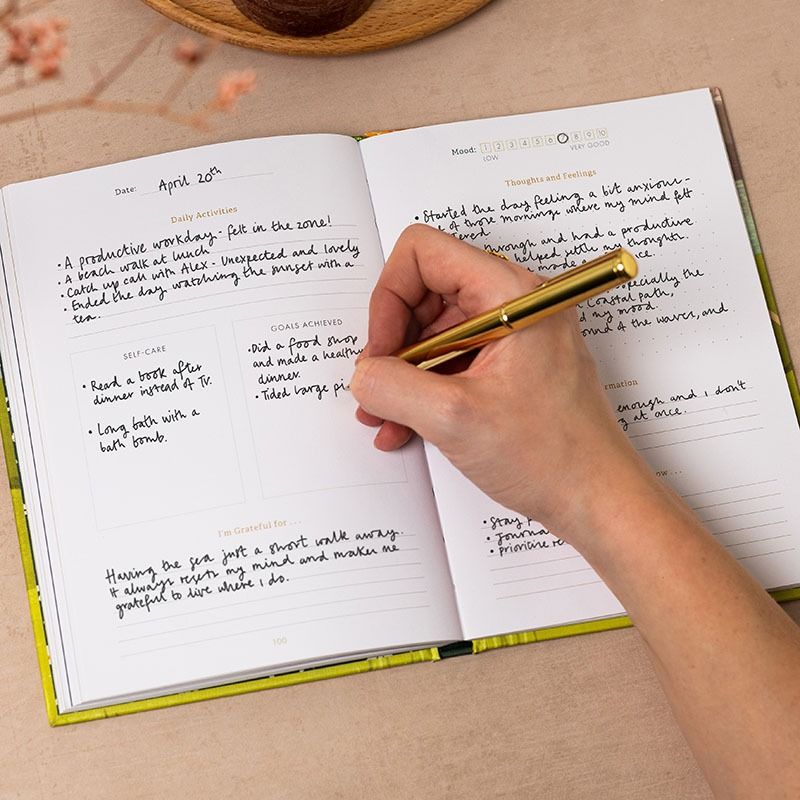 Date: April 20th
Daily Activities
• A productive workday - felt in the zone!
• A beach walk at lunch
• Catch up call with Alex - Unexpected and lovely
• Ended the day watching the sunset with a
tea.
SELF-CARE
• Read a book after
dinner instead of TV.
• Long bath with a
bath bomb.
GOALS ACHIEVED
• Did a food shop
and made a healthy
dinner.
• Tided large
I'm Grateful for ...
Having the sea just a short walk away.
It always resets my mind and makes me
grateful to live where I do.
100
Mood: 1 2 3 4 5 6 7 8 9 10
LOW VERY GOOD
Thoughts and Feelings
• Started the day feeling a bit anxious -
of those mornings where my mind felt
through and had a productive
helped settle my thoughts.
made a
especially the
Coastal path,
my mood.
of the waves, and
enough and I don't
at once.
• Stay
• Journal
• Prioritise